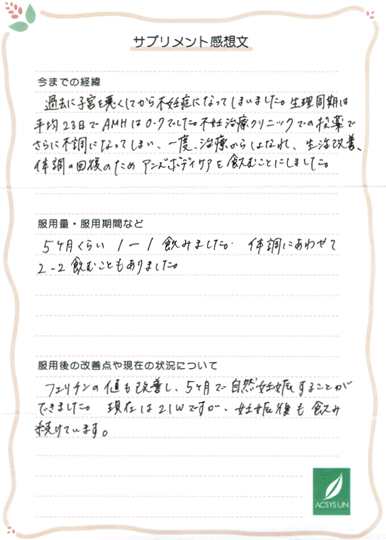 サプリメント感想文
今までの経緯
過去に子宮を悪くしてから不妊症になってしまいました。生理周期は
平均23日でAMHは0.7でした。不妊治療クリニックでの投薬で
さらに不調になってしまい、一度、治療からはなれ、生活改善、
体調の回復のためアンズボディケアを飲むことにしました。
服用量・服用期間など
5ヶ月くらい 1-1 飲みました。体調にあわせて
2-2 飲むこともありました。
服用後の改善点や現在の状況について
フェリチンの値も改善し、5ヶ月で自然妊娠することが
できました。現在は21Wですが、妊娠後も飲み
続けています。
ACSYSUN